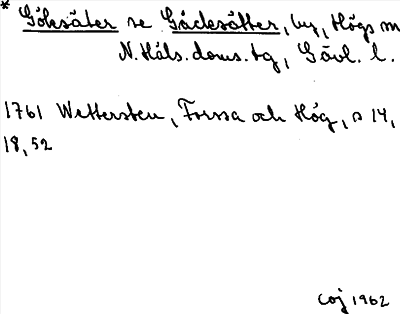 * Göksäter se Gäcksätter, by, Högs sn
N. Häls. doms. tg, Gävl. l.
1761 Wettersten, Forssa och Hög, s 14,
18, 52
Coj 1962